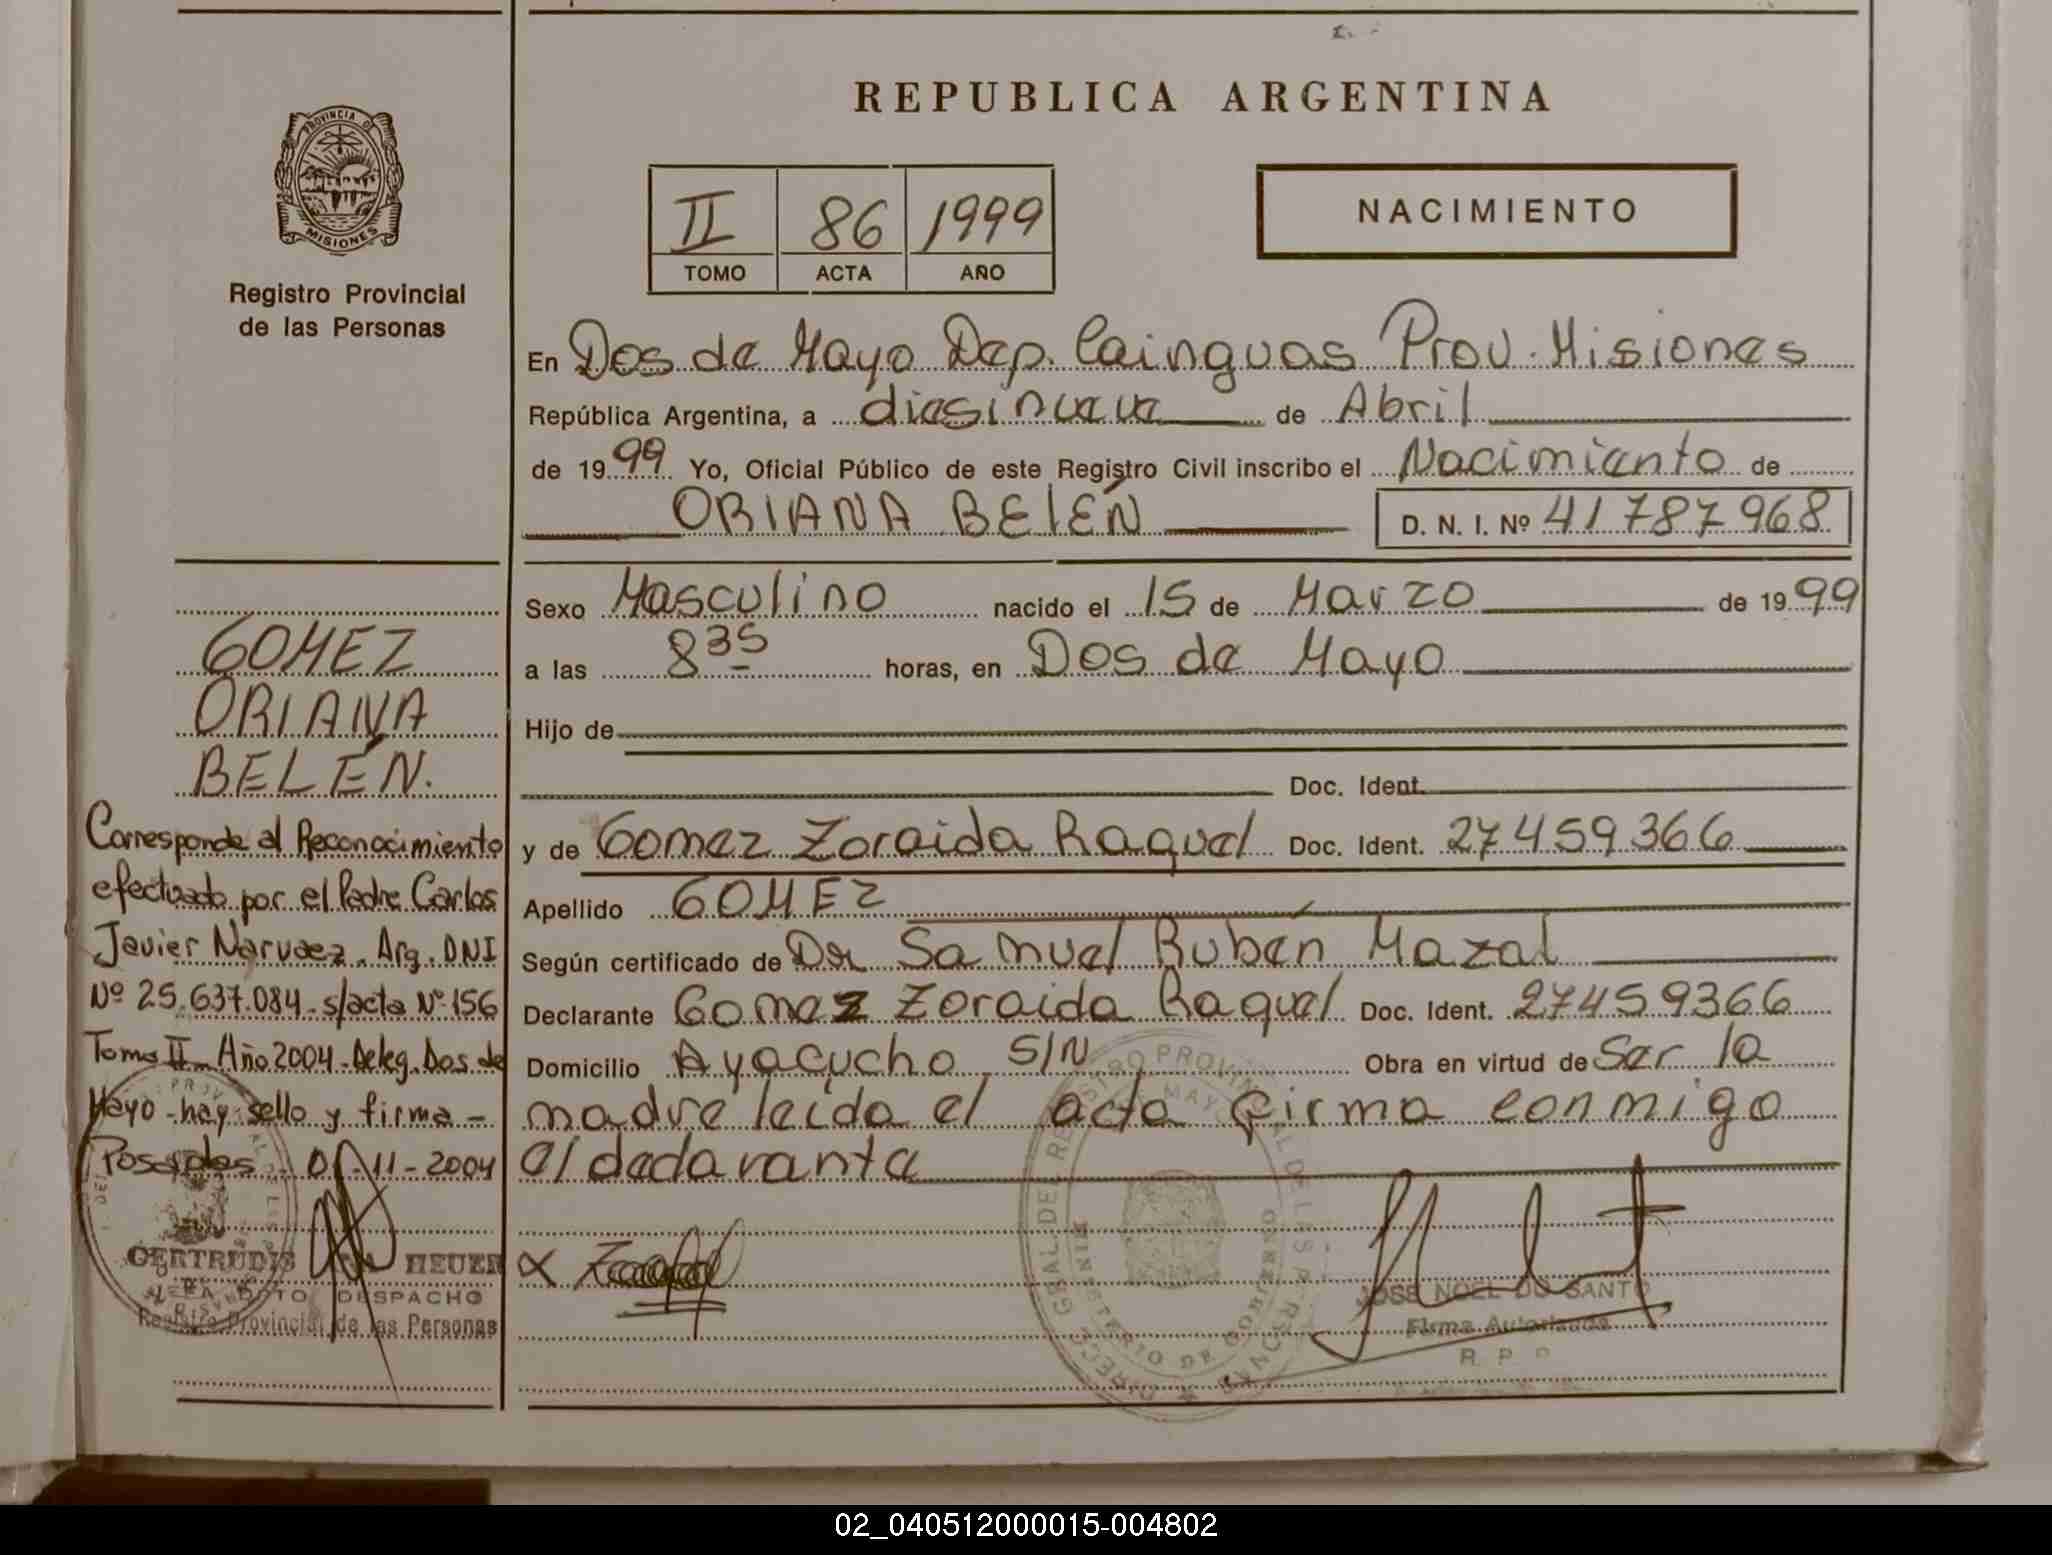 REPUBLICA ARGENTINA
PROVINCIA DE
MISIONES
Registro Provincial
de las Personas
II 86 1999
TOMO ACTA AÑO
NACIMIENTO
En Dos de Mayo Dep. Cainguas Prov. Misiones
República Argentina, a diesinueve de Abril
de 1999 Yo, Oficial Público de este Registro Civil inscribo el Nacimiento de
ORIANA BELÉN D. N. I. Nº 41787968
Sexo Masculino nacido el 15 de Marzo de 1999
a las 8 35 horas, en Dos de Mayo
Hijo de
Doc. Ident.
y de Gomez Zoraida Raquel Doc. Ident. 27459366
Apellido GOMEZ
Según certificado de Dr Samuel Rubén Mazal
Declarante Gomez Zoraida Raquel Doc. Ident. 27459366
Domicilio Ayacucho S/N Obra en virtud de Ser la
madre leida el acta firma conmigo
el declarante
JOSE NOEL DO SANTO
Firma Autorizada
R. P. P.
GOMEZ
ORIANA
BELÉN.
Corresponde al Reconocimiento
efectuado por el Padre Carlos
Javier Narvaez. Arg. DNI
Nº 25.637.084. s/acta Nº 156
Tomo II Año 2004 - Deleg. Dos de
Mayo - hay sello y firma -
Posadas 0 -11-2004
GERTRUDIS HEUER
DPTO DESPACHO
Registro Provincial de las Personas
02_040512000015-004802